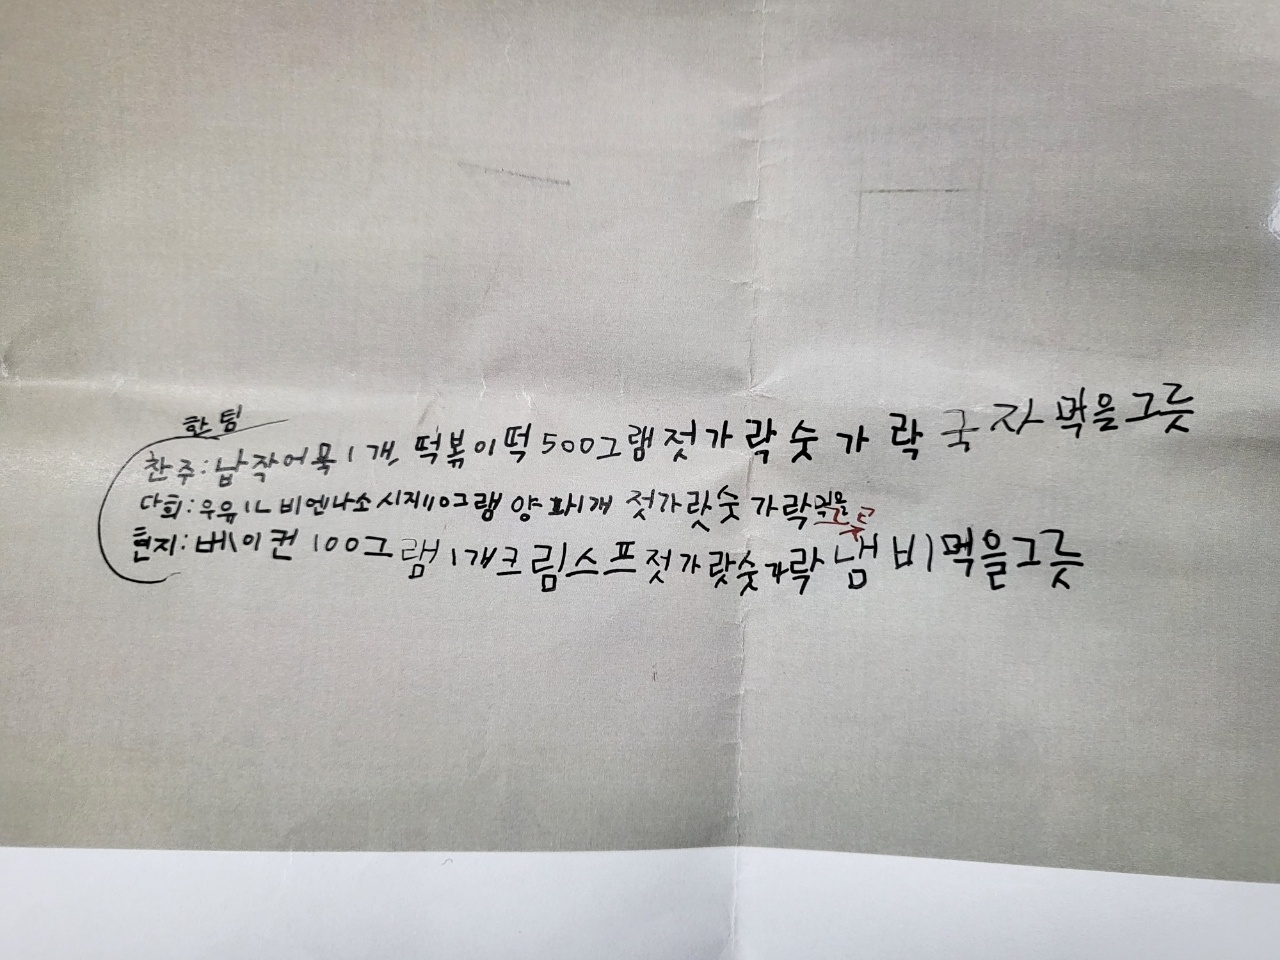 한팀
찬주: 납작어묵 1개 떡볶이떡 500그램 젓가락 숫가락 국자 먹을그릇
다희: 우유 1L 비엔나소시지 110그램 양파 1개 젓가랏 숫가락 먹을
현지: 베이컨 100그램 1개 크림스프 젓가랏 숫가락 냄비 먹을그릇